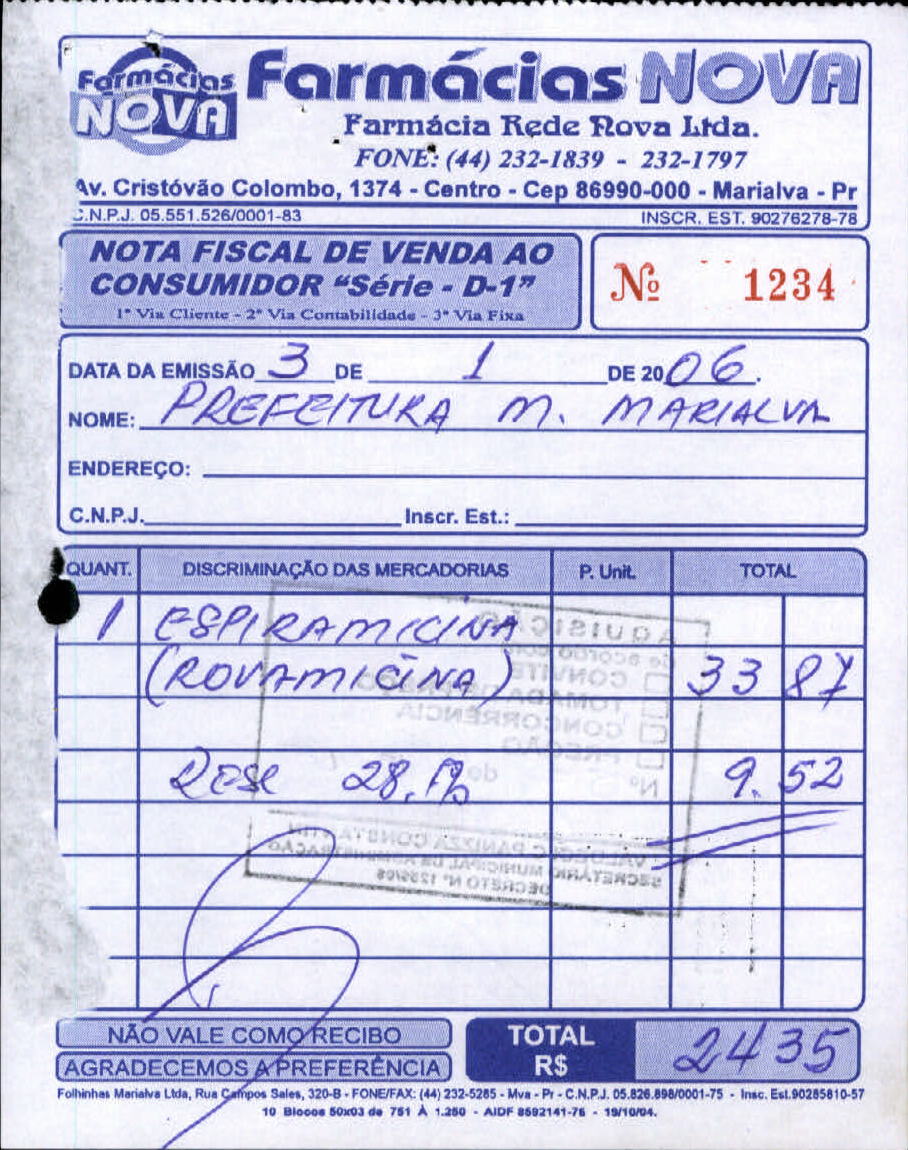 Farmácias NOVA
Farmácias NOVA
Farmácia Rede Nova Ltda.
FONE: (44) 232-1839 - 232-1797
Av. Cristóvão Colombo, 1374 - Centro - Cep 86990-000 - Marialva - Pr
C.N.P.J. 05.551.526/0001-83 INSCR. EST. 90276278-78
NOTA FISCAL DE VENDA AO
CONSUMIDOR "Série - D-1"
1ª Via Cliente - 2ª Via Contabilidade - 3ª Via Fixa
Nº 1234
DATA DA EMISSÃO 3 DE 1 DE 2006.
NOME: PREFEITURA M. MARIALVA
ENDEREÇO:
C.N.P.J. Inscr. Est.:
QUANT. DISCRIMINAÇÃO DAS MERCADORIAS P. Unit. TOTAL
1 ESPIRAMICINA
(ROVAMICINA) 33 87
Desc 9.52
AQUISIÇÃO
de acordo com
CONVITE
TOMADA DE PREÇO
CONCORRÊNCIA
PREGÃO
Nº de
SECRETÁRIO MUNICIPAL DE ADMINISTRAÇÃO
DECRETO Nº
NÃO VALE COMO RECIBO
AGRADECEMOS A PREFERÊNCIA
TOTAL
R$ 24 35
Folhinhas Marialva Ltda, Rua Campos Sales, 320-B - FONE/FAX: (44) 232-5265 - Mva - Pr - C.N.P.J. 05.826.898/0001-75 - Insc. Est.90285810-57
10 Blocos 50x03 de 751 À 1.250 - AIDF 8592141-76 - 19/10/04.